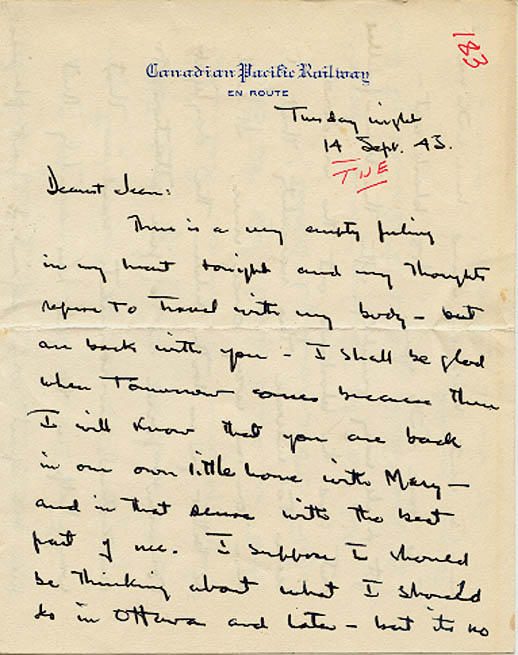 183
Canadian Pacific Railway
EN ROUTE
Tuesday night
14 Sept. 43.
TUE
Dearest Jean:
There is a very empty feeling
in my heart tonight and my thoughts
refuse to travel with my body – but
are back with you – I shall be glad
when tomorrow comes because then
I will know that you are back
in our own little home with Mary –
and in that sense with the best
part of me. I suppose I should
be thinking about what I should
do in Ottawa and later – but its no